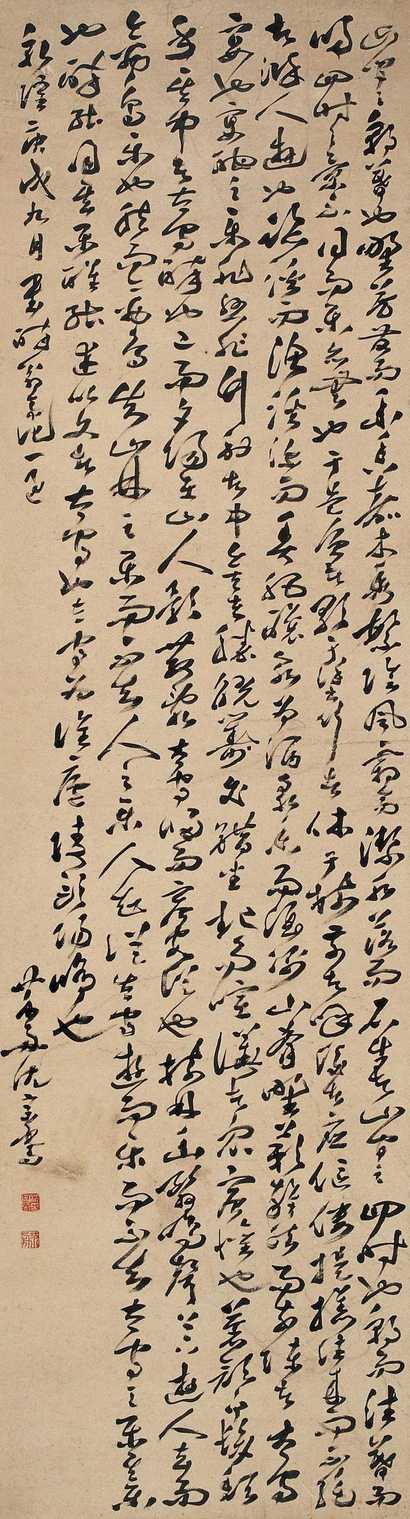 山間之朝暮也野芳發而幽香嘉木秀繁陰風霜高潔水落而石出者山間之四時也朝而往暮而
歸四時之景不同而樂亦無窮也于是負者歌于塗行者休于樹前者呼後者應傴僂提攜往來而不絕
者滁人遊也臨溪而漁溪深而魚肥釀泉為酒泉香而酒洌山肴野蔌雜然而前陳者太守
宴也宴酣之樂非絲非竹射者中弈者勝觥籌交錯坐起而諠譁者眾賓懽也蒼顏白髮頹
乎其中者太守醉也已而夕陽在山人影散亂太守歸而賓客從也樹林陰翳鳴聲上下遊人去而
禽鳥樂也然而禽鳥知山林之樂而不知人之樂人知從太守遊而樂而不知太守之樂其樂
也醉能同其樂醒能述以文者太守也太守為誰廬陵歐陽脩也
乾隆庚戌九月書醉翁亭記一過
沈宗騫